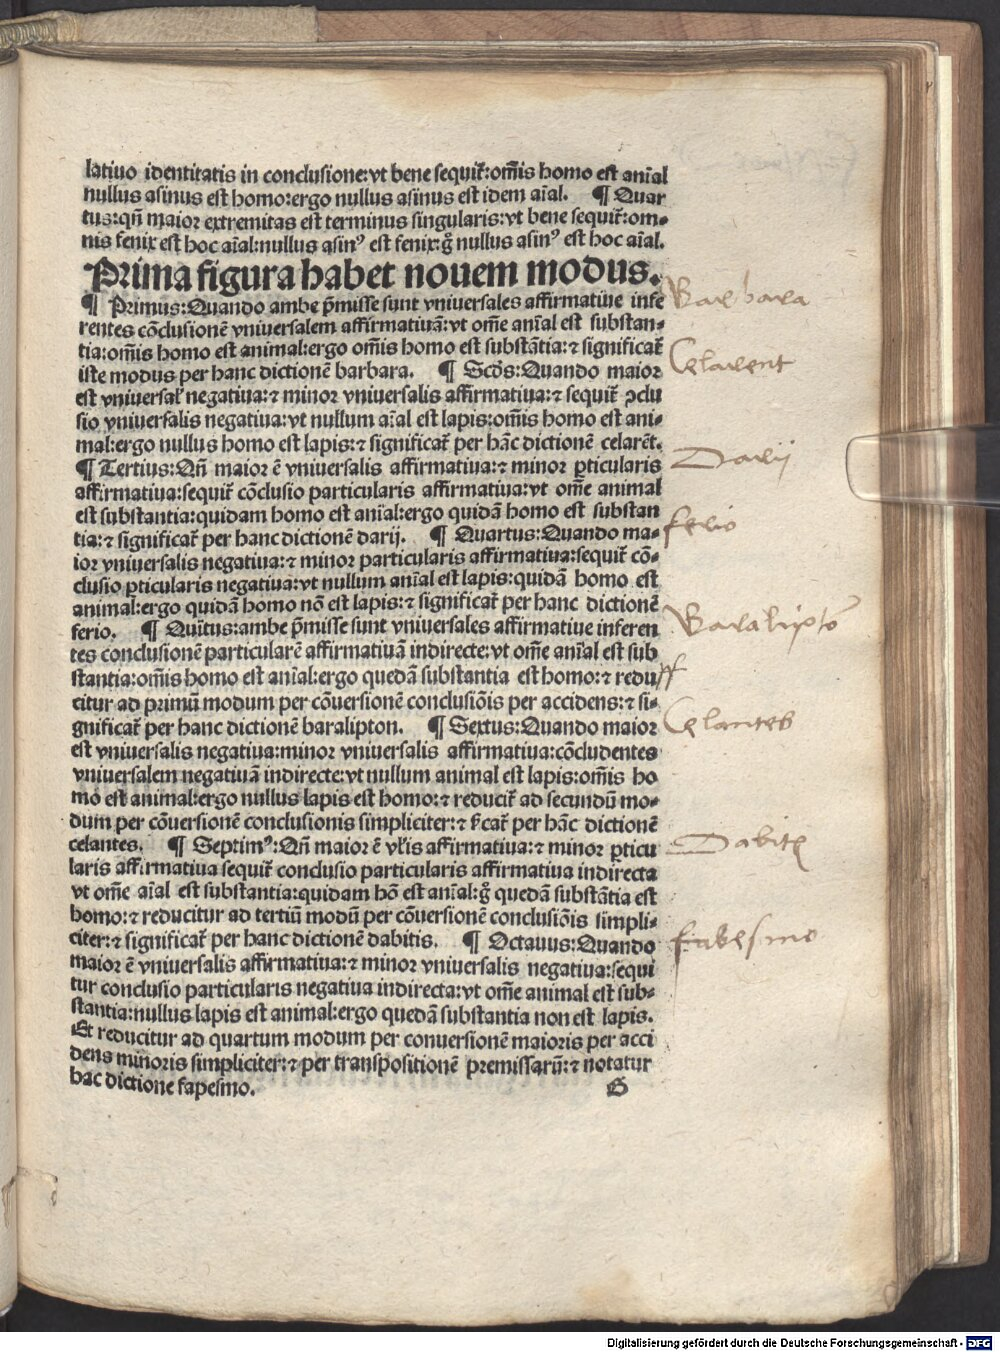 latiuo identitatis in conclusione:vt bene sequit̃:om̃is homo est anĩal
nullus asinus est homo:ergo nullus asinus est idem aĩal. ¶ Quar
tus:qñ maior extremitas est terminus singularis:vt bene sequit̃:om-
nis fenix est hoc aĩal:nullus asinꝰ est fenix:g̊ nullus asinꝰ est hoc aĩal.
Prima figura habet nouem modus.
¶ Primus:Quando ambe p̃misse sunt vniuersales affirmatiue infe
rentes cõclusionẽ vniuersalem affirmatiuã:vt om̃e anĩal est substan-
tia:om̃is homo est animal:ergo om̃is homo est substãtia:⁊ significat̃
iste modus per hanc dictionẽ barbara. ¶ Scd̃s:Quando maior
est vniuersal̕ negatiua:⁊ minor vniuersalis affirmatiua:⁊ sequit̃ ↄclu
sio vniuersalis negatiua:vt nullum aĩal est lapis:om̃is homo est ani-
mal:ergo nullus homo est lapis:⁊ significat̃ per hãc dictionẽ celarẽt.
¶ Tertius:Qñ maior ẽ vniuersalis affirmatiua:⁊ minor ꝑticularis
affirmatiua:sequit̃ cõclusio particularis affirmatiua:vt om̃e animal
est substantia:quidam homo est anĩal:ergo quidã homo est substan
tia:⁊ significat̃ per hanc dictionẽ darij. ¶ Quartus:Quando ma-
ior vniuersalis negatiua:⁊ minor particularis affirmatiua:sequit̃ cõ-
clusio ꝑticularis negatiua:vt nullum anĩal est lapis:quidã homo est
animal:ergo quidã homo nõ est lapis:⁊ significat̃ per hanc dictionẽ
ferio. ¶ Quĩtus:ambe p̃misse sunt vniuersales affirmatiue inferen
tes conclusionẽ particularẽ affirmatiuã indirecte:vt om̃e anĩal est sub
stantia:om̃is homo est anĩal:ergo quedã substantia est homo:⁊ redu
citur ad primũ modum per cõuersionẽ conclusiõis per accidens:⁊ si-
gnificat̃ per hanc dictionẽ baralipton. ¶ Sextus:Quando maior
est vniuersalis negatiua:minor vniuersalis affirmatiua:cõcludentes
vniuersalem negatiuã indirecte:vt nullum animal est lapis:om̃is ho
mo est animal:ergo nullus lapis est homo:⁊ reducit̃ ad secundũ mo-
dum per cõuersionẽ conclusionis simpliciter:⁊ s̃cat̃ per hãc dictionẽ
celantes. ¶ Septimꝰ:Qñ maior ẽ vl̃is affirmatiua:⁊ minor ꝑticu
laris affirmatiua sequit̃ conclusio particularis affirmatiua indirecta
vt om̃e aĩal est substantia:quidam hõ est anĩal:g̊ quedã substãtia est
homo:⁊ reducitur ad tertiũ modũ per cõuersionẽ conclusiõis simpli-
citer:⁊ significat̃ per hanc dictionẽ dabitis. ¶ Octauus:Quando
maior ẽ vniuersalis affirmatiua:⁊ minor vniuersalis negatiua:sequi
tur conclusio particularis negatiua indirecta:vt om̃e animal est sub-
stantia:nullus lapis est animal:ergo quedã substantia non est lapis.
Et reducitur ad quartum modum per conuersionẽ maioris per acci
dens minoris simpliciter:⁊ per transpositionẽ premissarũ:⁊ notatur
hac dictione fapesmo.
G
Barbara
Celarent
Darij
ferio
Baraliptõ
Celantes
Dabitis
fapesmo
Digitalisierung gefördert durch die Deutsche Forschungsgemeinschaft - DFG